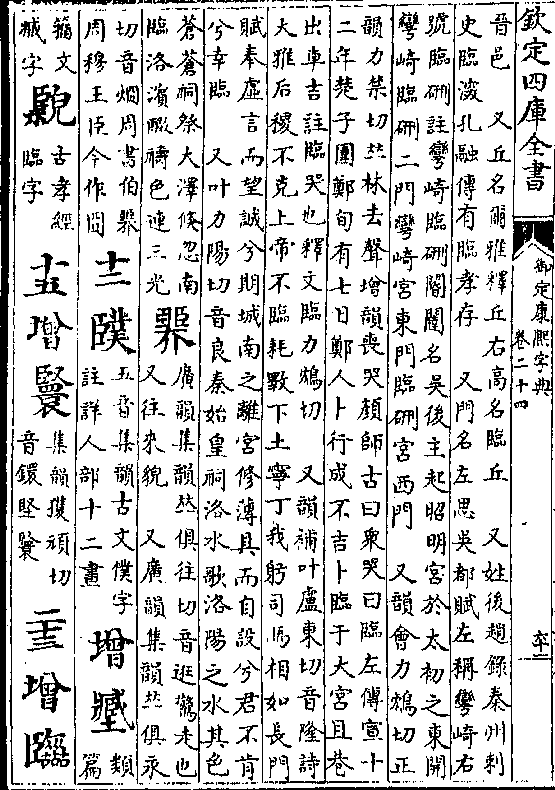 欽定四庫全書
御定康熙字典
卷二十四
六十二
晉邑　又丘名爾雅釋丘右高名臨丘　又姓後趙錄秦州刺
史臨深孔融傳有臨孝存　又門名左思吳都賦左稱彎崎右
號臨硎註彎崎臨硎閶闔名吳後主起昭明宮於太初之東開
彎崎臨硎二門彎崎宮東門臨硎宮西門　又韻會力鴆切正
韻力禁切𠀤林去聲增韻喪哭顏師古曰衆哭曰臨左傳宣十
二年楚子圍鄭旬有七日鄭人卜行成不吉卜臨于大宮且巷
出車吉註臨哭也釋文臨力鴆切　又韻補叶盧東切音隆詩
大雅后稷不克上帝不臨耗斁下土寧丁我躬司馬相如長門
賦奉虛言而望誠兮期城南之離宮修薄具而自設兮君不肯
兮幸臨　又叶力陽切音良秦始皇祠洛水歌洛陽之水其色
蒼蒼祠祭大澤倏忽南
臨洛濱醊禱色連三光
臩
廣韻集韻𠀤俱往切音逛驚走也
又往來貌　又廣韻集韻𠀤俱永
切音煚周書伯臩
周穆王臣今作冏
十二
五音集韻古文僕字
註詳人部十二畫
增
類
篇
籀文
臧字
古孝經
臨字
十五
增
集韻攓頑切
音鐶堅
二十三
增